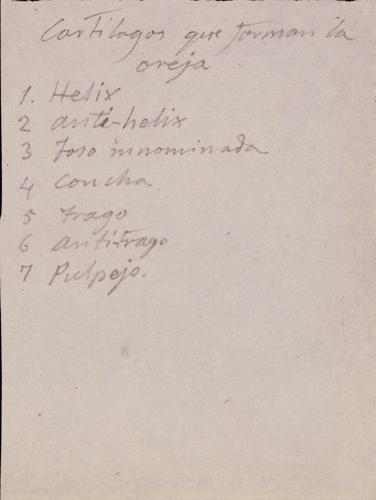 Cartilagos que forman la
oreja
1. Helix
2 anti-helix
3 foso innominada
4 Concha
5 trago
6 antitrago
7 Pulpejo.